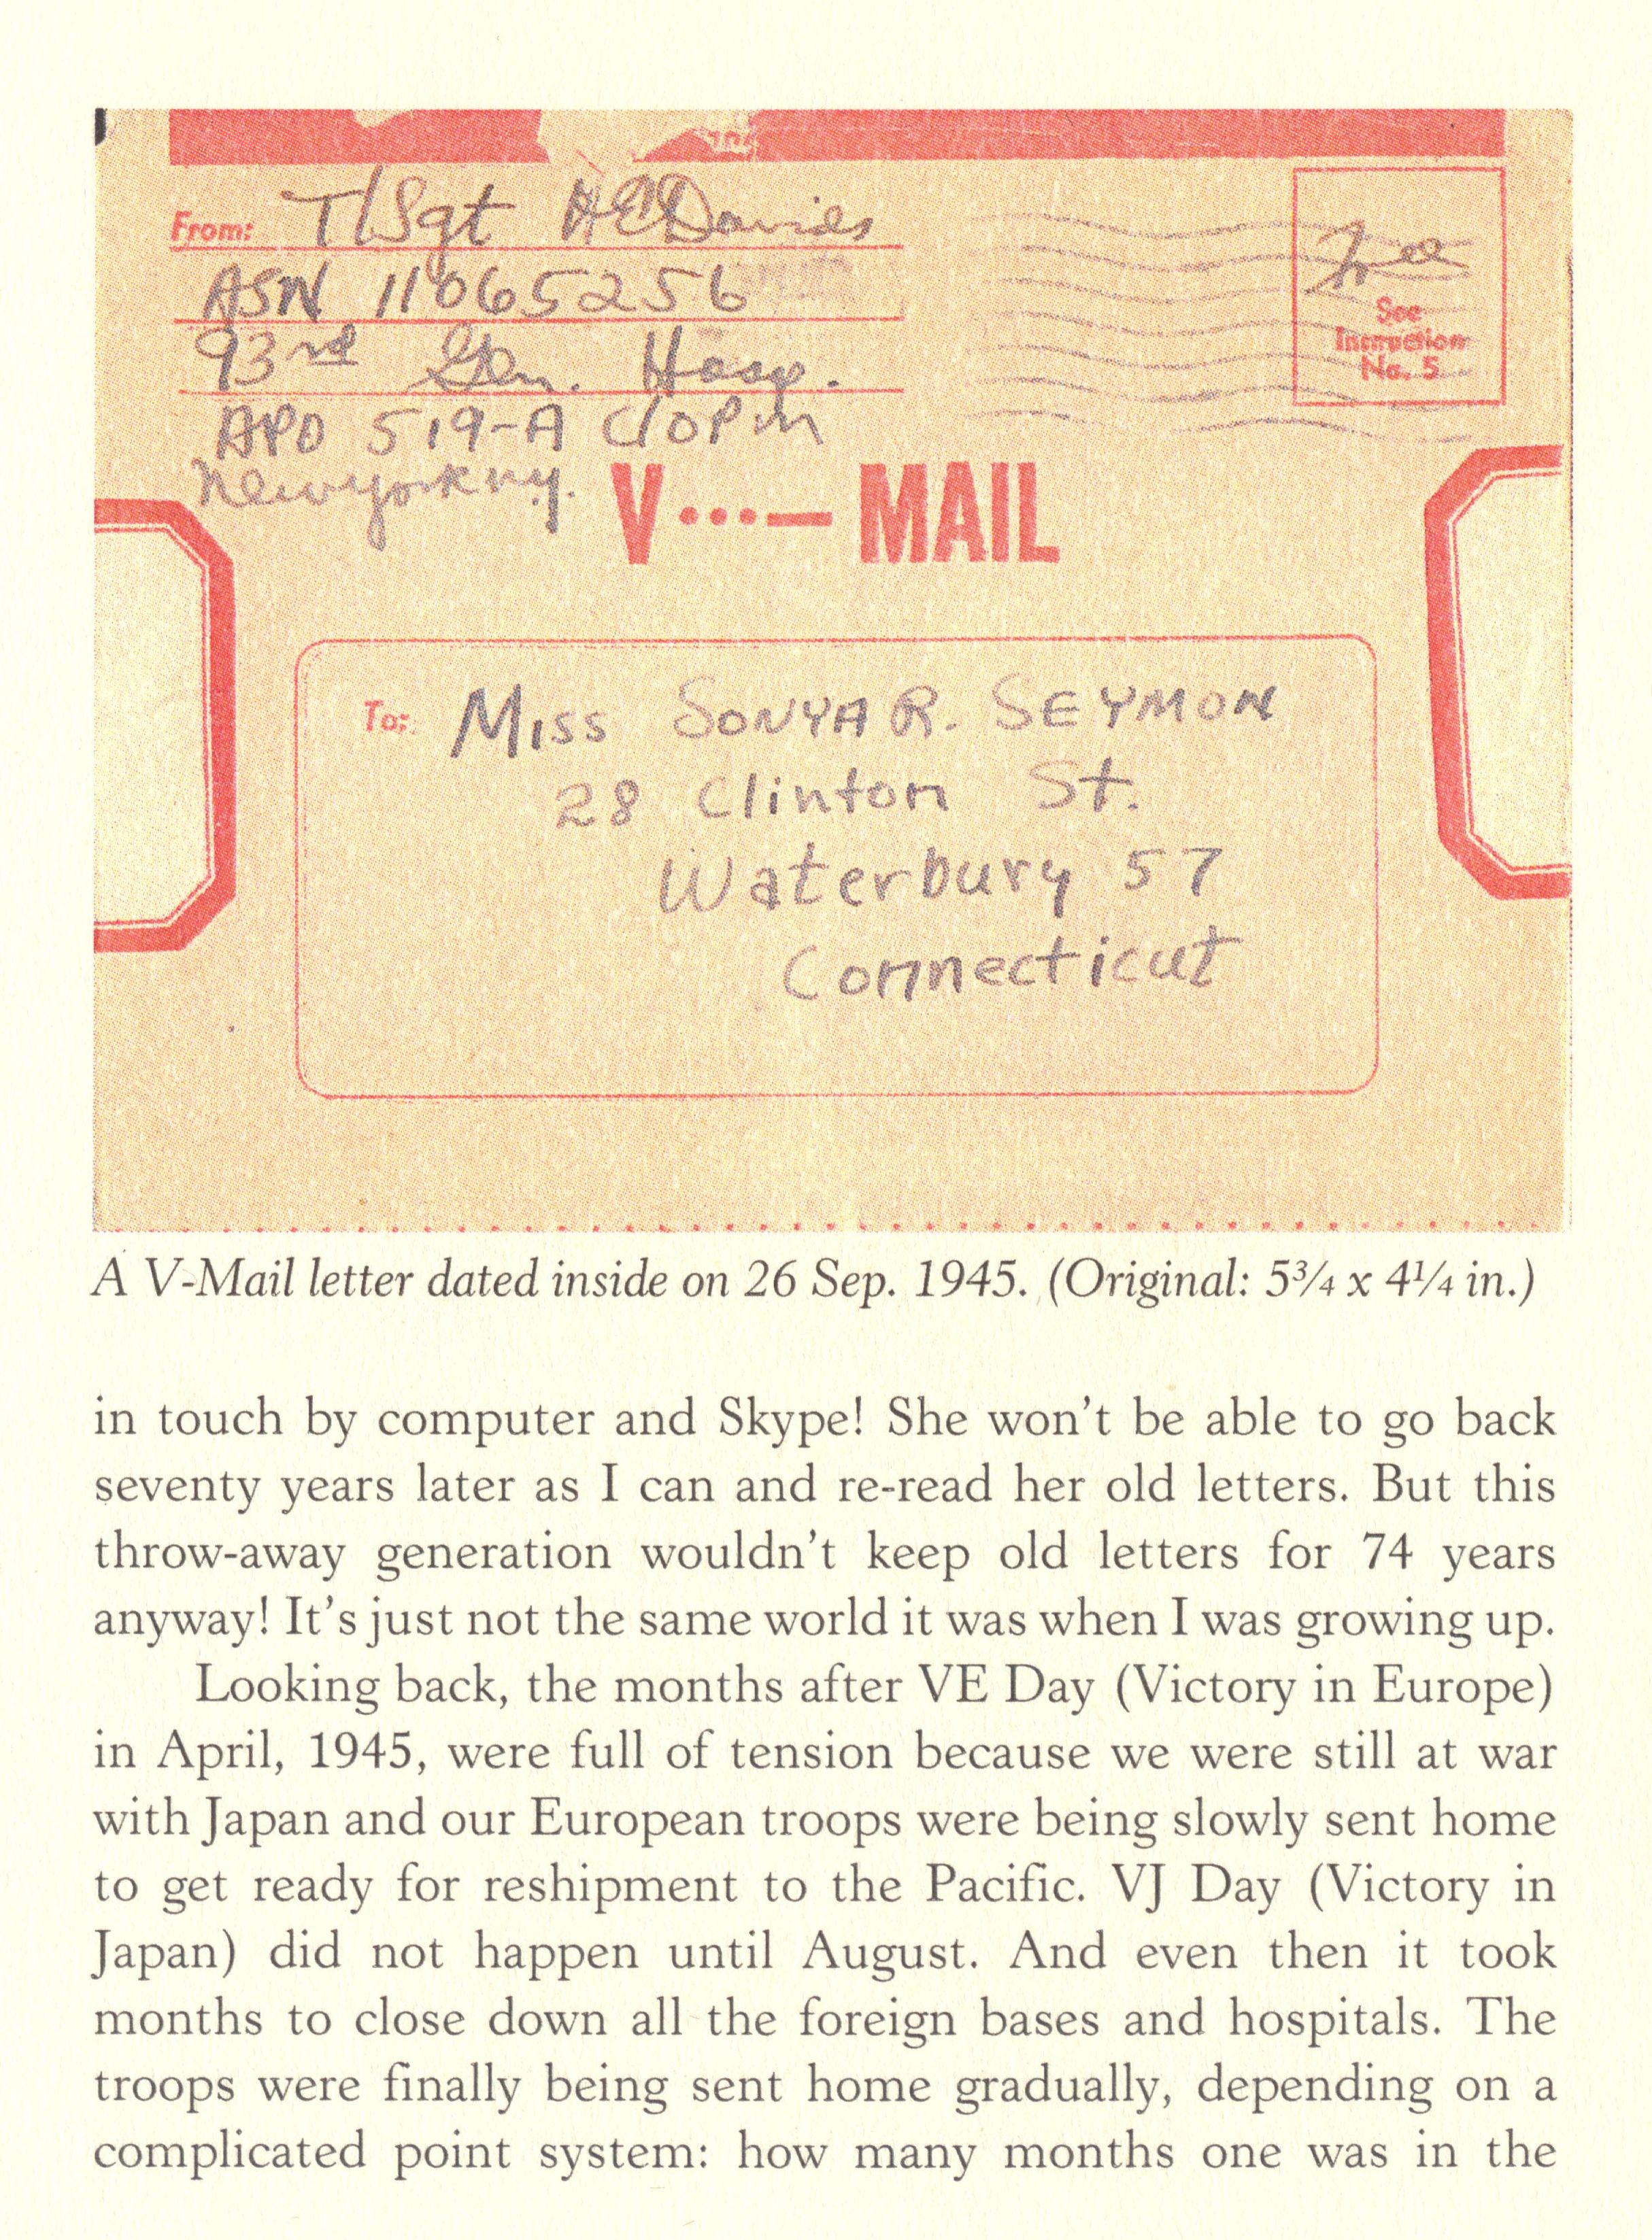 From: T/Sgt HEDavies
ASN 11065256
93rd Gen. Hosp.
APO 519-A C/OPM
New york ny.
Free
See
Instruction
No. 5
V...— MAIL
To: MISS SONYA R. SEYMON
28 Clinton St.
Waterbury 57
Connecticut
A V-Mail letter dated inside on 26 Sep. 1945. (Original: 5¾ x 4¼ in.)
in touch by computer and Skype! She won't be able to go back
seventy years later as I can and re-read her old letters. But this
throw-away generation wouldn't keep old letters for 74 years
anyway! It's just not the same world it was when I was growing up.
Looking back, the months after VE Day (Victory in Europe)
in April, 1945, were full of tension because we were still at war
with Japan and our European troops were being slowly sent home
to get ready for reshipment to the Pacific. VJ Day (Victory in
Japan) did not happen until August. And even then it took
months to close down all the foreign bases and hospitals. The
troops were finally being sent home gradually, depending on a
complicated point system: how many months one was in the